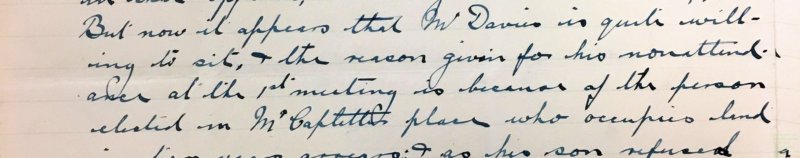 But now it appears that Mr Davies is quite will-
ing to sit, & the reason given for his nonattend-
ance at the 1st meeting is because of the person
elected in Mr place who occupies land
& as his son refused